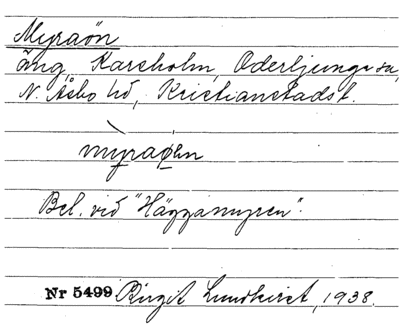 Myraön
äng, Karsholm, Oderljunga sn,
N. Åsbo hd, Kristianstads l.
mỳraøn
Bel. vid "Häggamyren".
Nr 5499 Birgit Lundkvist, 1938.